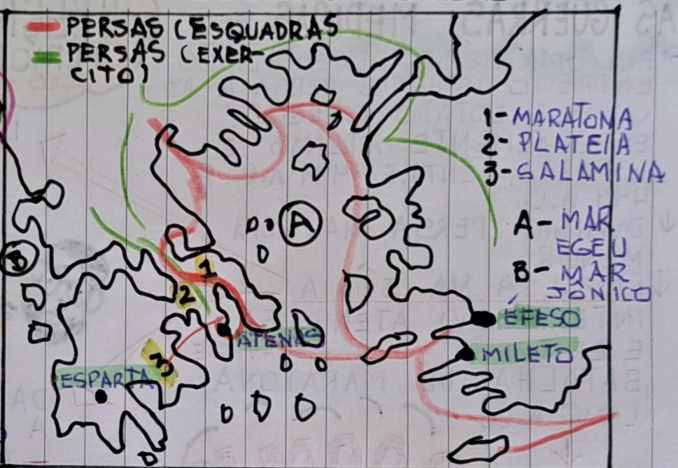 PERSAS (ESQUADRAS
PERSAS (EXER-
CITO)
1-MARATONA
2-PLATEIA
3-SALAMINA
A
A- MAR
EGEU
B- MAR
JÔNICO
B
1
2
ÉFESO
ATENAS
MILETO
3
ESPARTA